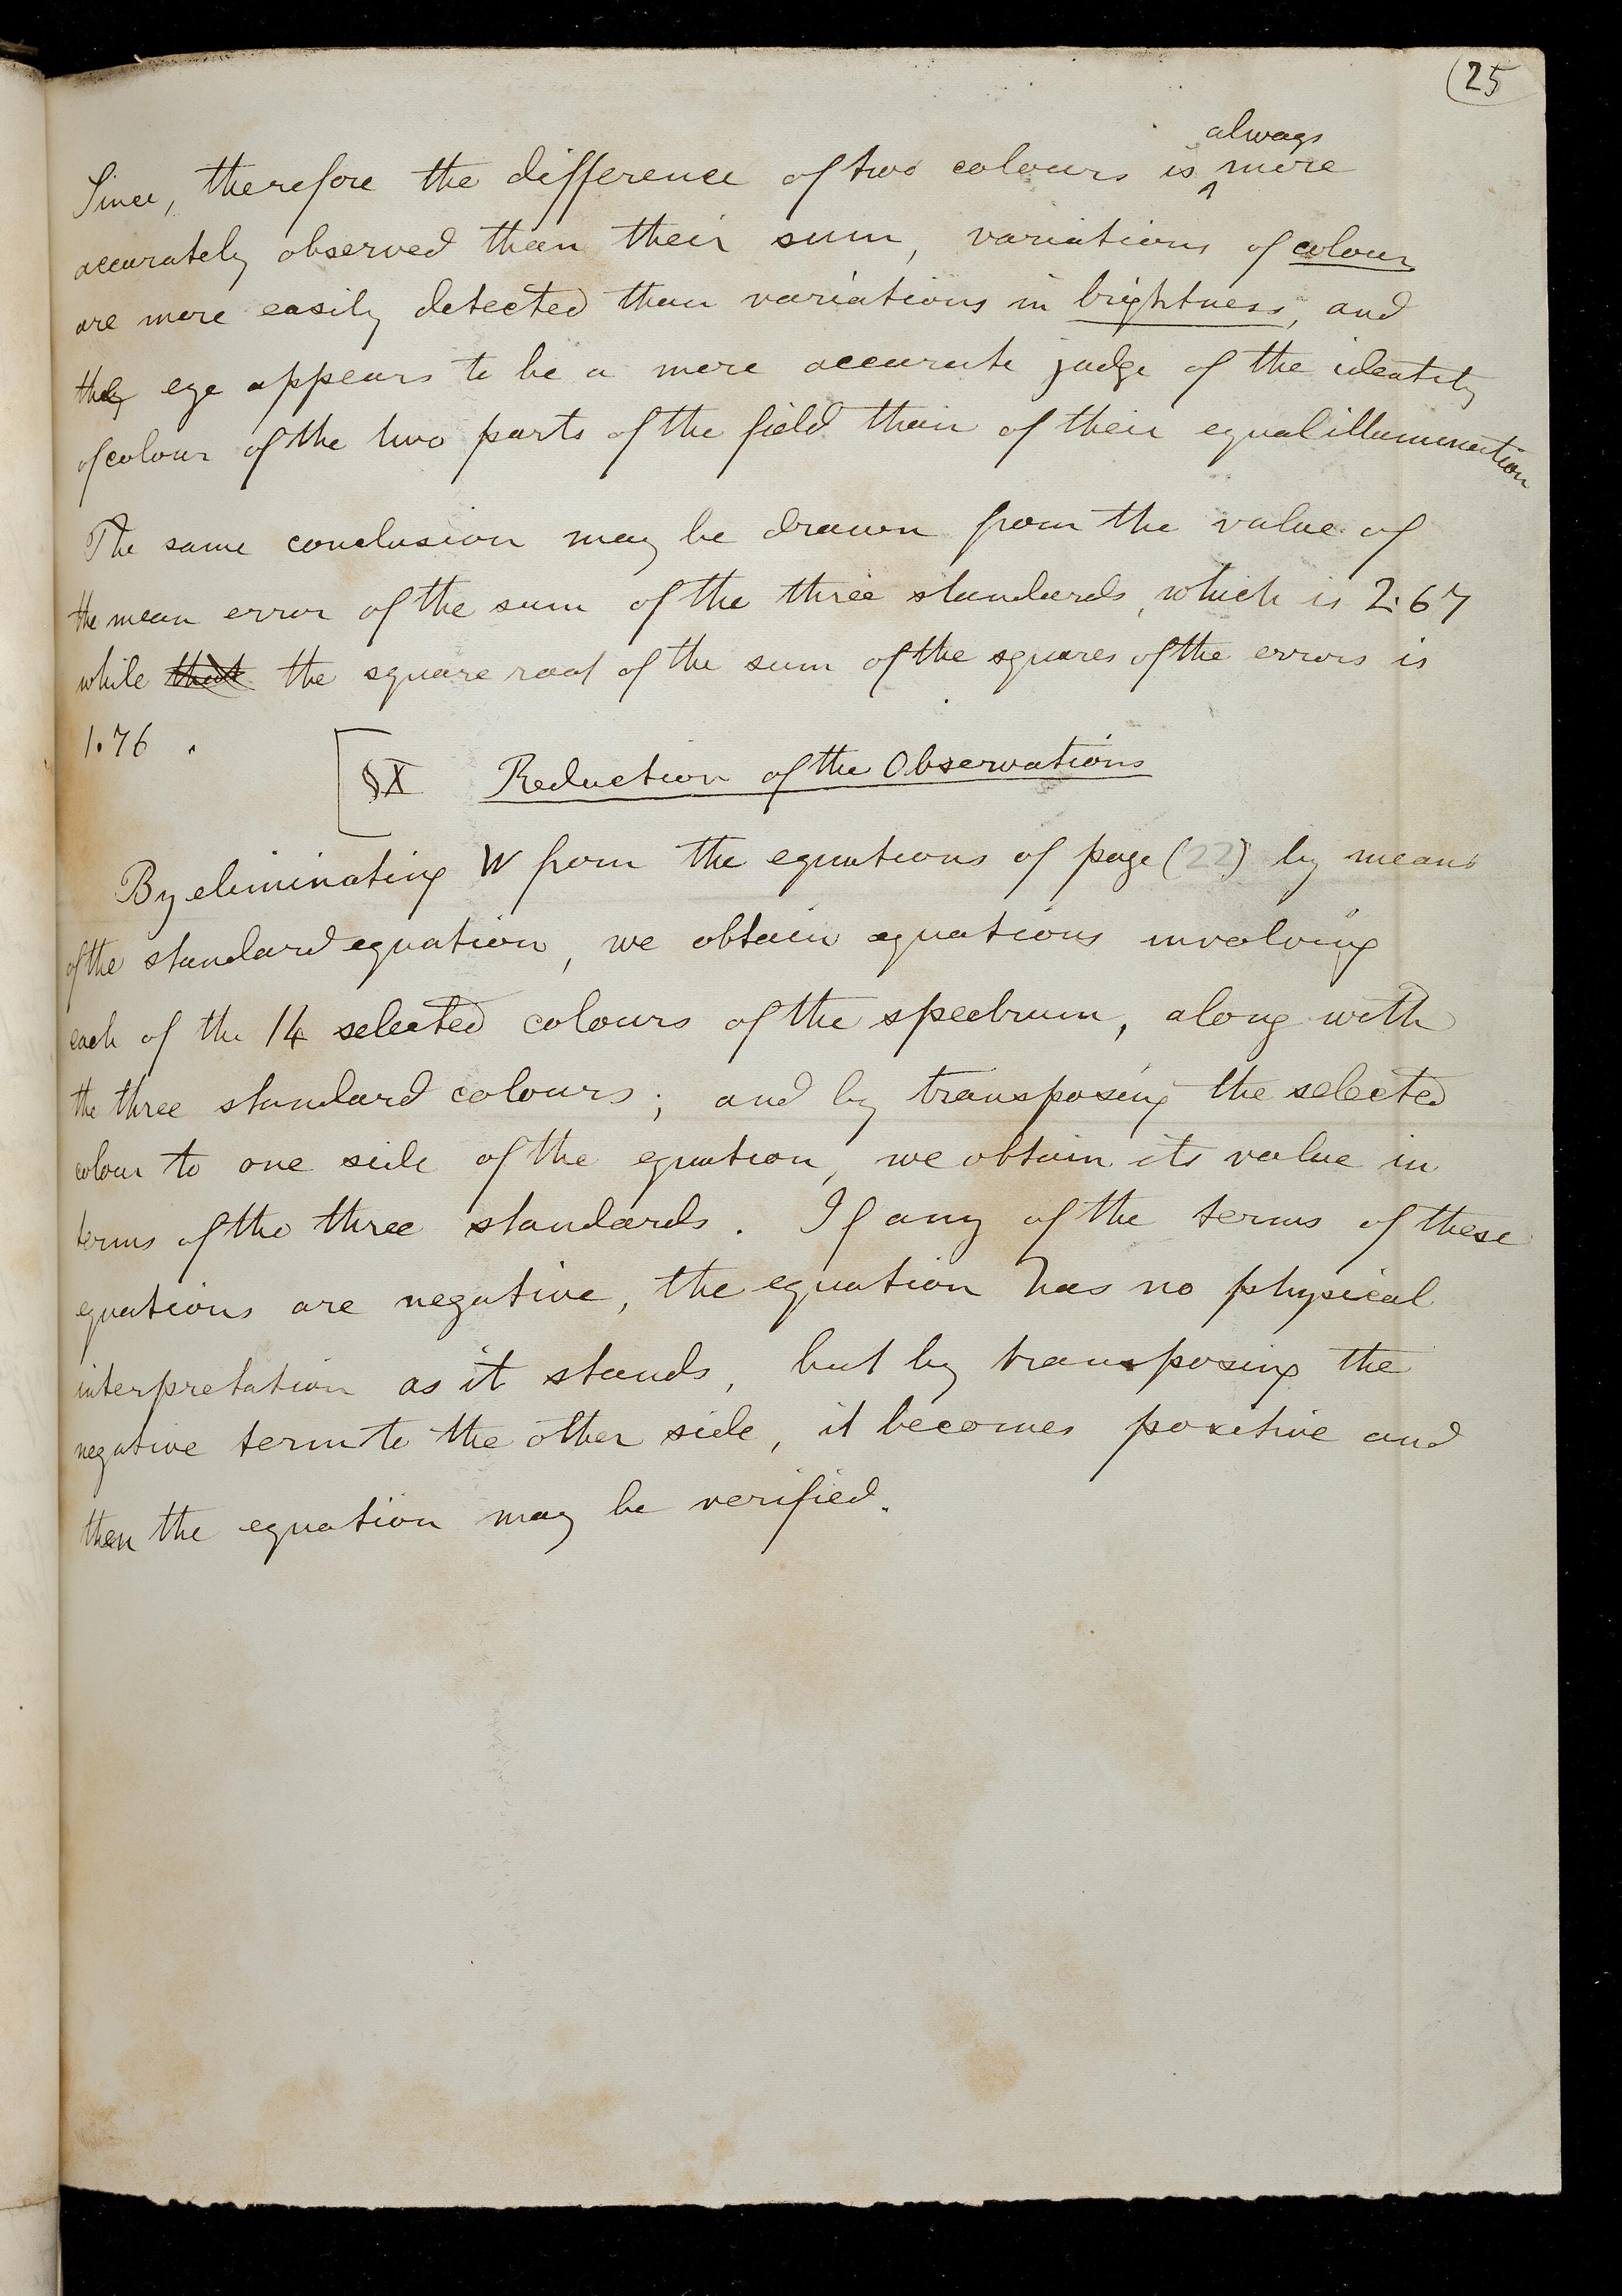 (25
always
Since, therefore the difference of two colours is ^ more
accurately observed than their sum, variations of colour
are more easily detected than variations in brightness, and
the eye appears to be a more accurate judge of the identity
of colour of the two parts of the field than of their equal illumination
The same conclusion may be drawn from the value of
the mean error of the sum of the three standards, which is 2.67
while that the square root of the sum of the squares of the errors is
1.76 .
§X Reduction of the Observations
By eliminating W from the equations of page (22) by means
of the standard equation, we obtain equations involving
each of the 14 selected colours of the spectrum, along with
the three standard colours; and by transposing the selected
colour to one side of the equation, we obtain its value in
terms of the three standards. If any of the terms of these
equations are negative, the equation has no physical
interpretation as it stands, but by transposing the
negative term to the other side, it becomes positive and
then the equation may be verified.